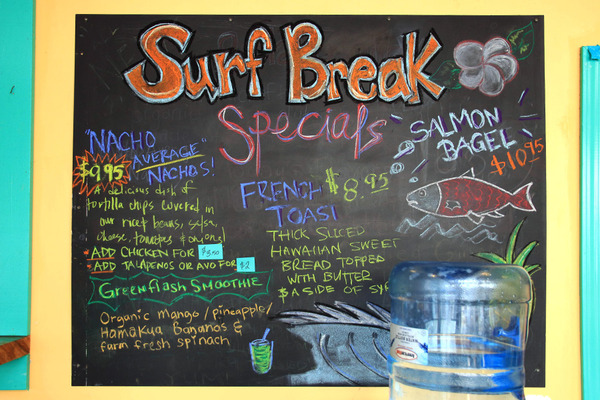 Surf Break
Specials
"NACHO
AVERAGE"
NACHOS!
$9.95
A delicious dish of
tortilla chips covered in
our rice beans, salsa,
cheese, tomatoes & onions!
- ADD CHICKEN FOR $3.50
- ADD JALAPENOS OR AVO FOR $2
Greenflash SMOOTHIE
Organic mango/pineapple/
Hamakua Bananas &
farm fresh spinach
FRENCH
TOAST
$8.95
THICK SLICED
HAWAIIAN SWEET
BREAD TOPPED
WITH BUTTER
& A SIDE OF SY
SALMON
BAGEL
$10.95